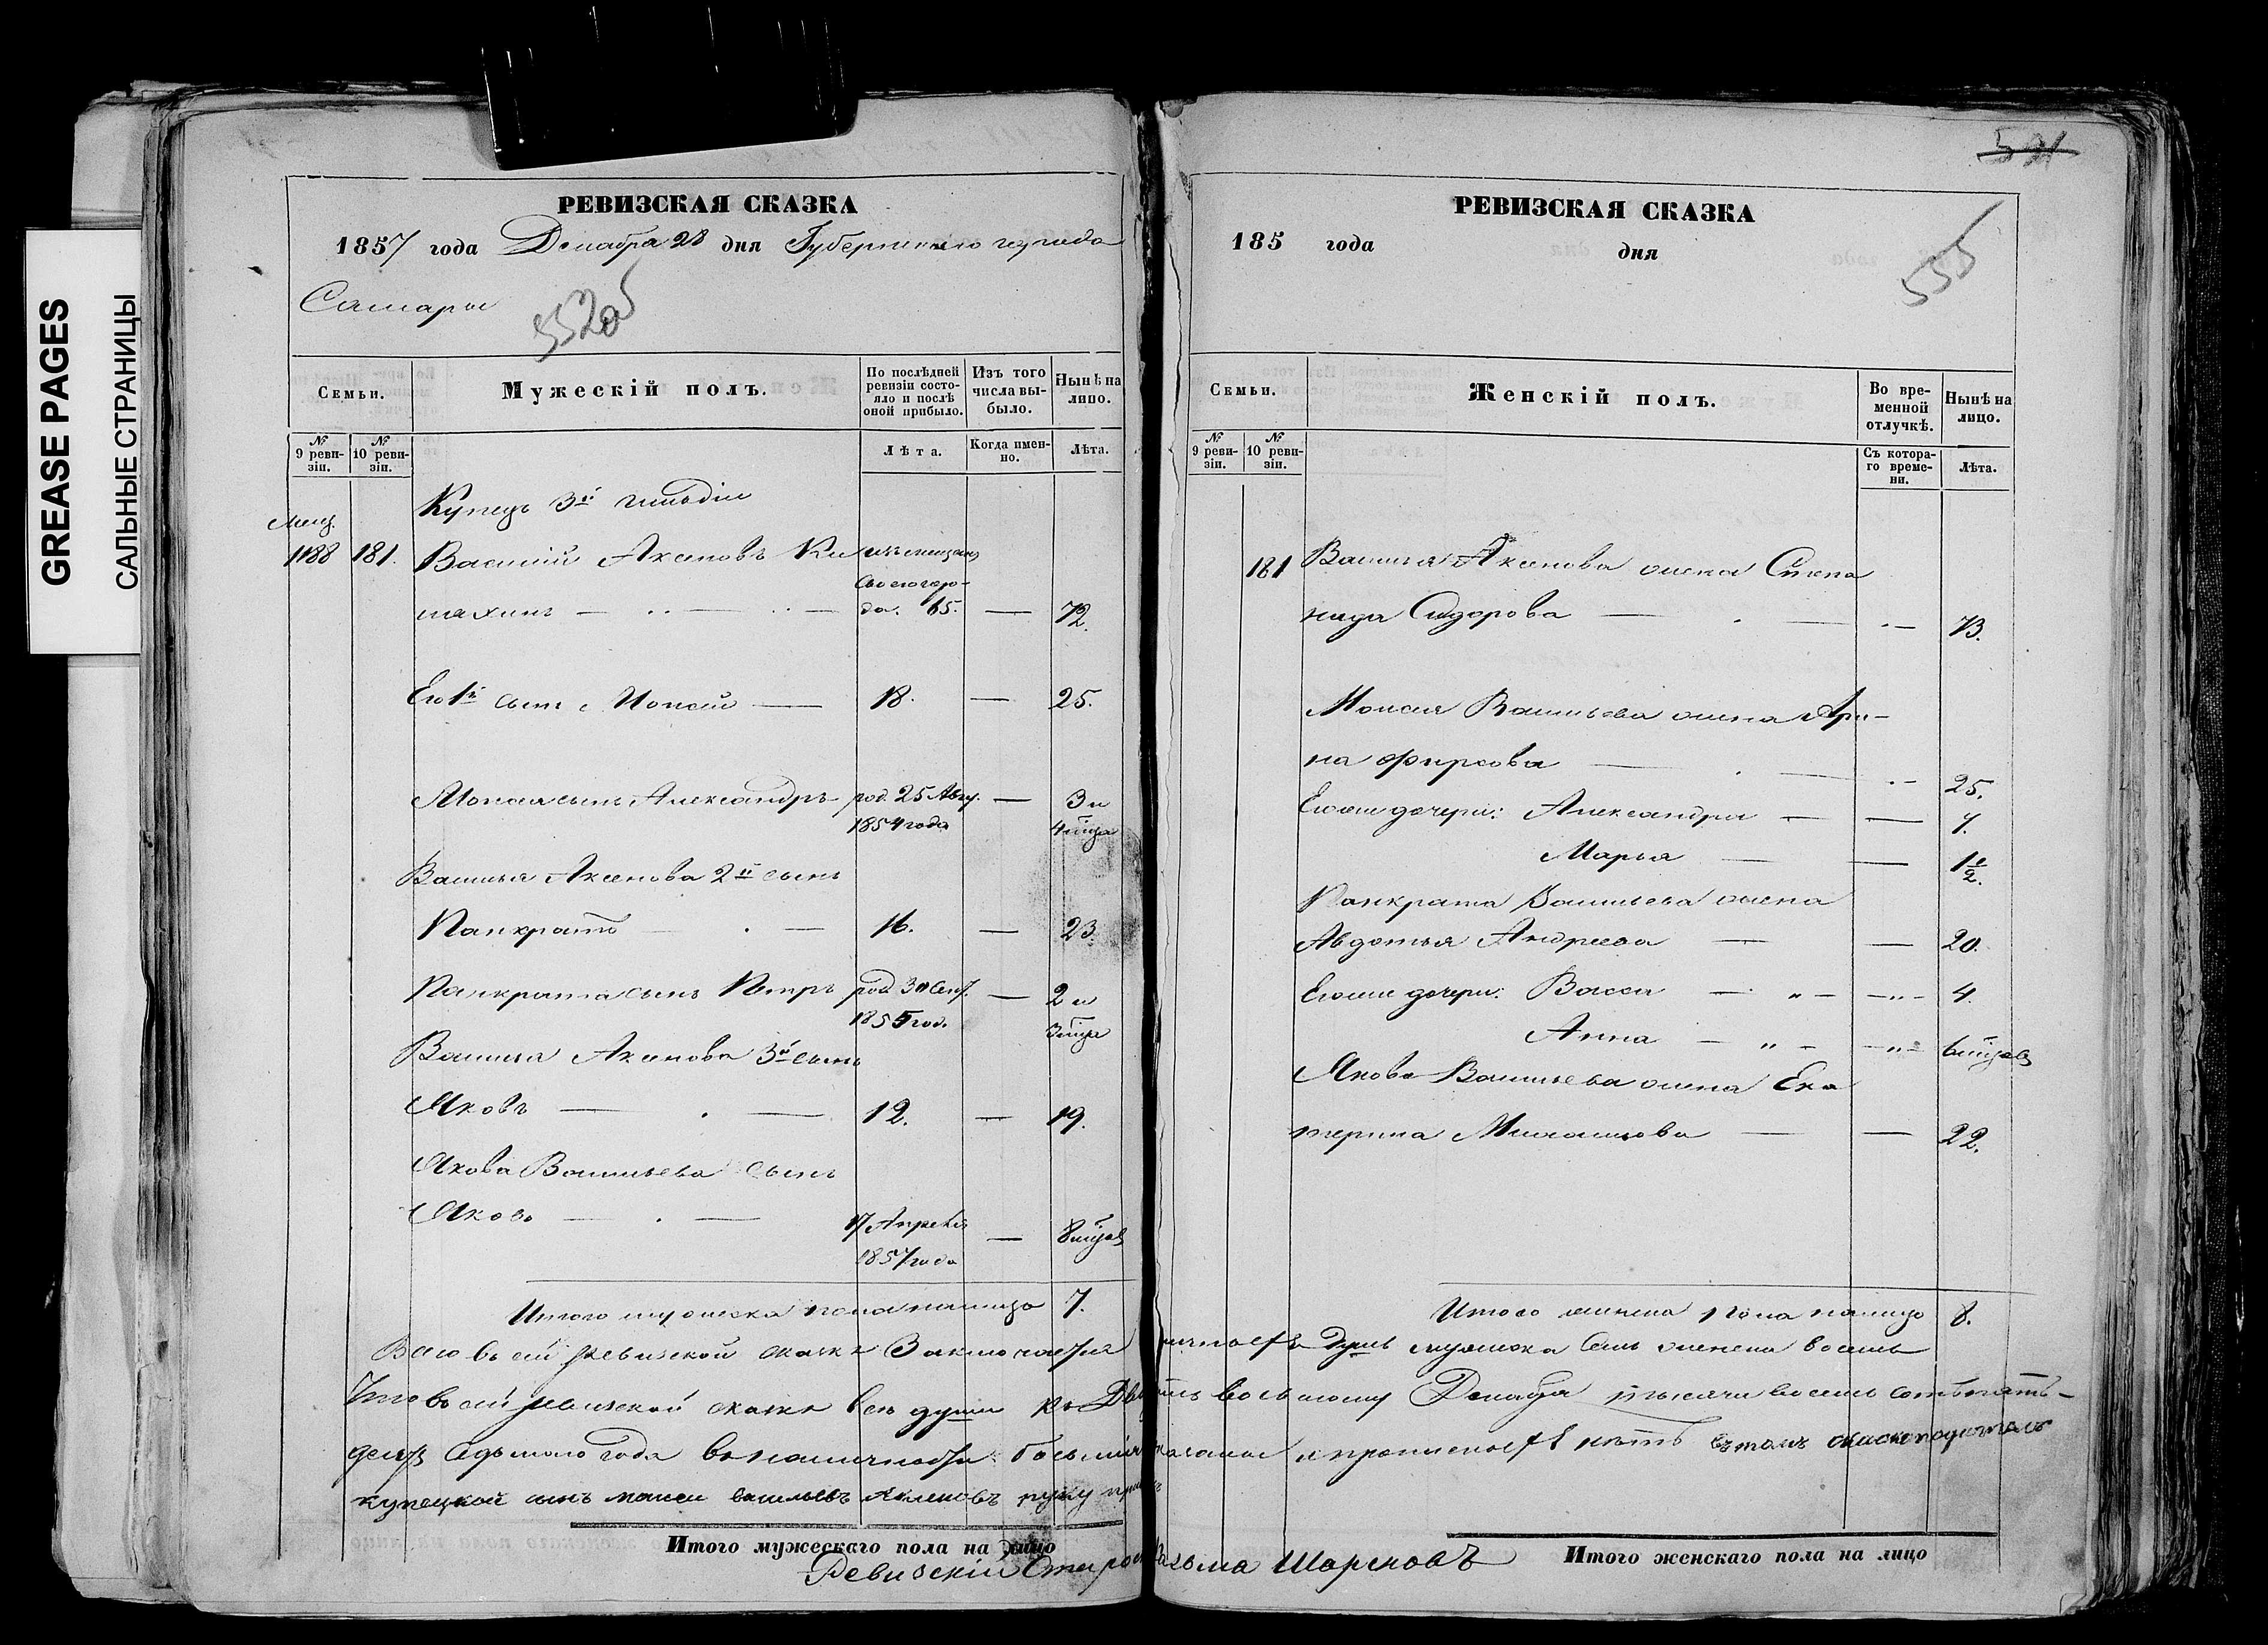 GREASE PAGES
САЛЬНЫЕ СТРАНИЦЫ
РЕВИЗСКАЯ СКАЗКА
1857 года Декабря 28 дня Губернскаго города
Самары
552об
Семьи.
Мужескій полъ.
По послѣдней ревизіи состояло и послѣ оной прибыло.
Изъ того числа выбыло.
Нынѣ на лицо.
№ 9 ревизіи.
№ 10 ревизіи.
Лѣта.
Когда именно.
Лѣта.
Купецъ 3й гильдіи
Мещ.
1188 181. Василій Аксеновъ изъ мещанъ
сего горо-
да. 65. — 72.
Его 1й сынъ Моисей — 18. — 25.
Моисея сынъ Александръ род. 25 Авгу. — 3 и
1854 года 4 мѣца
Василья Аксенова 2й сынъ
Панкратъ — 16. — 23.
Панкрата сынъ Петръ род. 30 Сент. — 2 и
1855 год. 3 мѣца
Василья Аксенова 3й сынъ
Яковъ — 12. — 19.
Якова Васильева сынъ
Яковъ — 17 Апреля — 8 мѣцов
1857 года
Итого мужеска пола на лицо 7.
Итого мужескаго пола на лицо
РЕВИЗСКАЯ СКАЗКА
521
185 года дня
555
Семьи.
Женскій полъ.
Во временной отлучкѣ.
Нынѣ на лицо.
№ 9 ревизіи.
№ 10 ревизіи.
Съ котораго времени.
Лѣта.
181 Василья Аксенова жена Степа
нида Сидорова — 73.
Моисея Васильева жена Ари-
на Фирсова — 25.
Его же дочери: Александра — 7.
Марья — 1 1/2.
Панкрата Васильева жена
Авдотья Андреева — 20.
Его же дочери: Васса — 4.
Анна — 6 мѣцов
Якова Васильева жена Ека
терина — 22.
Итого женска пола на лицо 8.
Всего въ сей ревизской сказкѣ Заключается душъ мужеска семь женска восемь
Что въ сей ревизской сказкѣ все души къ восьмому Декабря тысяча восемь сотъ пять-
десятъ седьмого года въ наличности и прописныхъ нѣтъ въ томъ
купецкой сынъ моисеи васильевъ аксеновъ руку
Ревизскій Староста Козьма Шароновъ
Итого женскаго пола на лицо